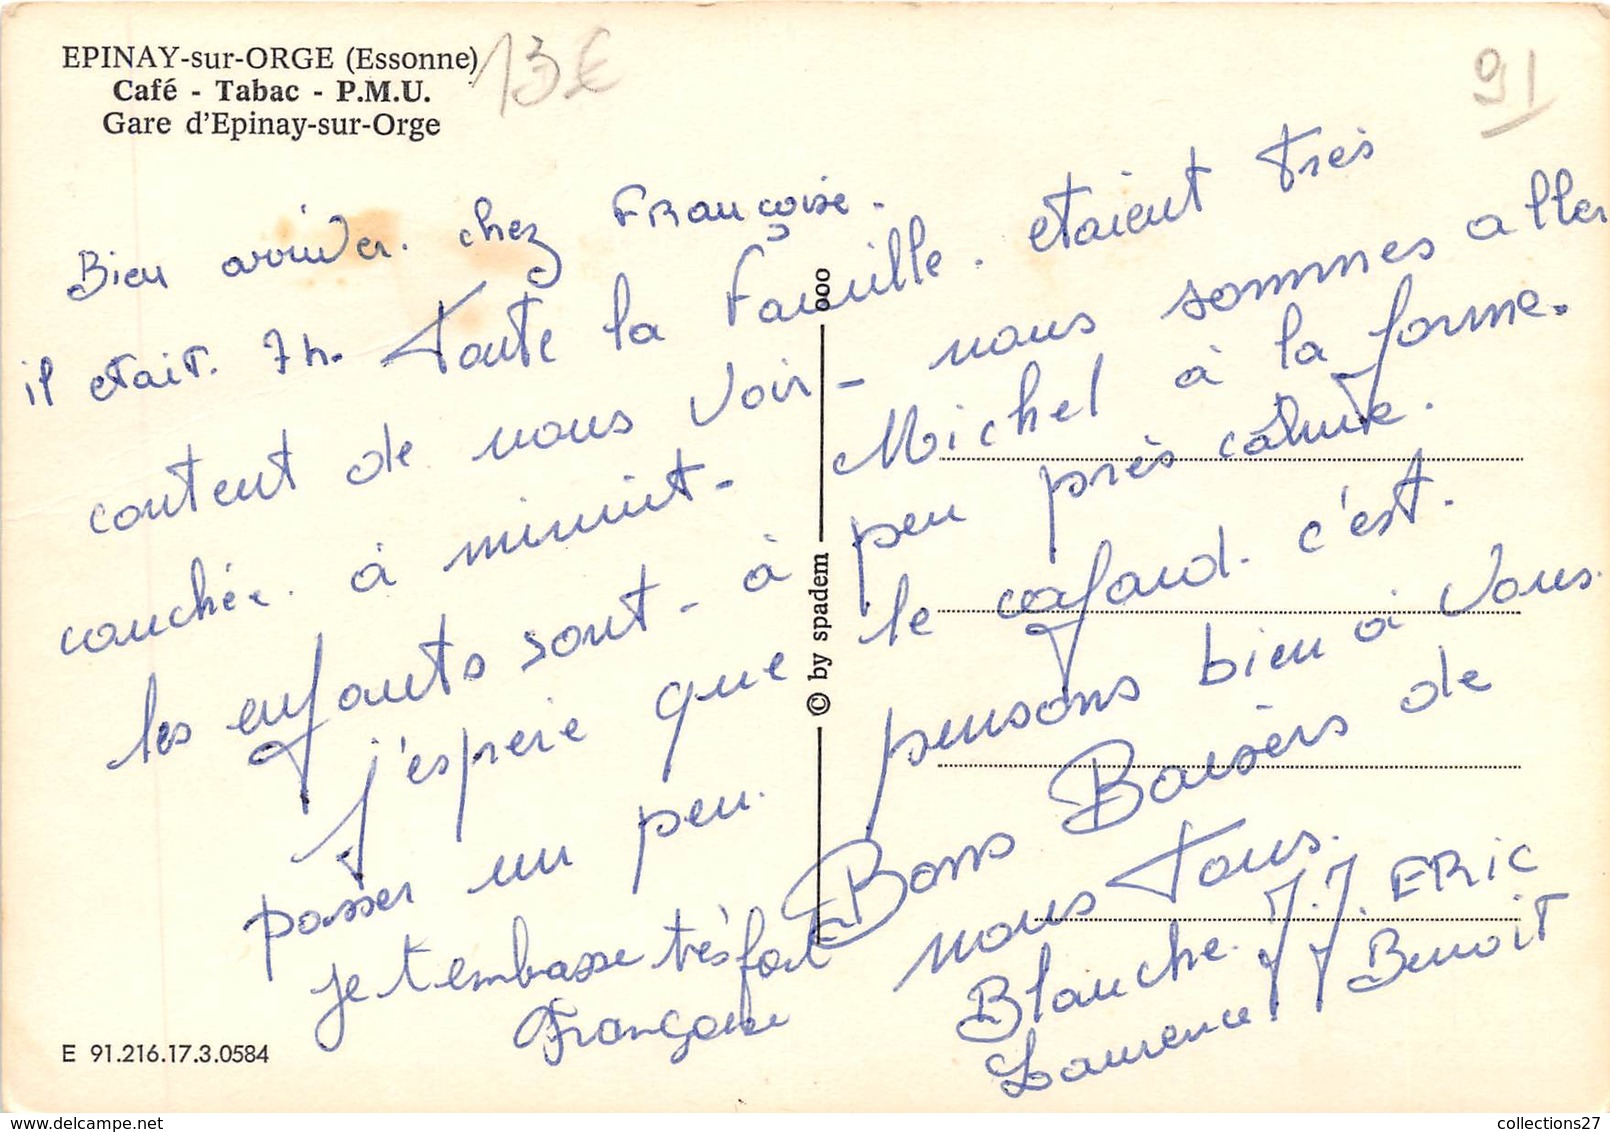 EPINAY-sur-ORGE (Essonne)
Café - Tabac - P.M.U.
Gare d'Epinay-sur-Orge
13€
91
Bien arriver. chez Françoise.
il etait. 7h. Toute la Famille. etaient très
content de nous voir - nous sommes aller
couchée. à minuit - Michel à la forme.
les enfants sont - à peu près calme.
j'espère que le cafard. c'est.
passer un peu. pensons bien à vous.
Bons Baisers de
nous tous.
Blanche. J.J. ERIC
Laurence Benoit
je t embasse très fort
Françoise
© by spadem
ooo
E 91.216.17.3.0584
collections27